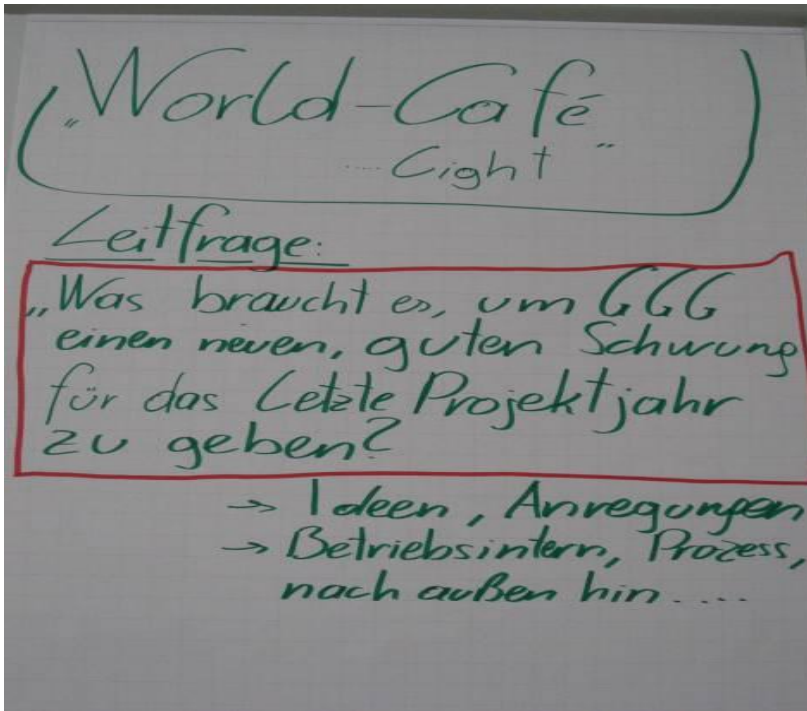 „World-Café
.... Light"
Leitfrage:
„Was braucht es, um GGG
einen neuen, guten Schwung
für das Letzte Projektjahr
zu geben?
→ Ideen, Anregungen
→ Betriebsintern, Prozess,
nach außen hin ....